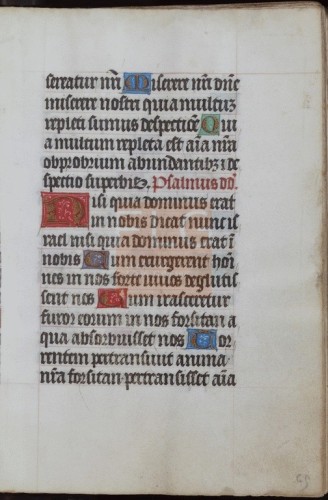 sereatur nr̄i Miserere nr̄i dn̄e
miserere nostri quia multuȝ
repleti sumus despectiōe Qui
a multum repleta est aīa nr̄a
obprobrium abundantibȝ ⁊ de
spectio superbis. Psalmus dd̄.
Nisi quia dominus erat
in nobis dicat nunc is
rael nisi quia dominus erat ī
nobis Cum exurgerent hoī
nes in nos forte uiuos deglutis
sent nos Cum irasceretur
furor eorum in nos forsitan a
qua absorbuisset nos Tor
rentem pertransiuit anima
nr̄a forsitan pertransisset aīa